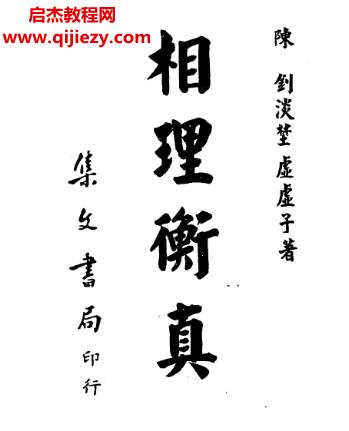 启杰教程网
www.qijiezy.com
陳釗淡埜虛虛子著
相理衡真
集文書局印行